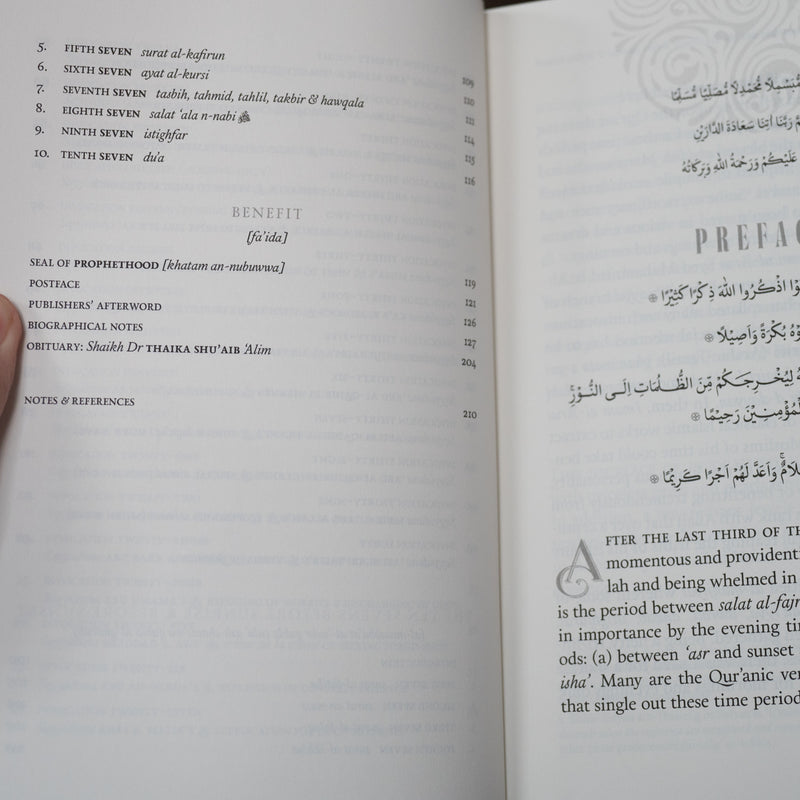 5. FIFTH SEVEN surat al-kafirun 109
6. SIXTH SEVEN ayat al-kursi 110
7. SEVENTH SEVEN tasbih, tahmid, tahlil, takbir & hawqala 111
8. EIGHTH SEVEN salat ʻala n-nabi ﷺ 114
9. NINTH SEVEN istighfar 115
10. TENTH SEVEN du'a 116
BENEFIT
[fa'ida]
SEAL OF PROPHETHOOD [khatam an-nubuwwa] 119
POSTFACE 121
PUBLISHERS' AFTERWORD 126
BIOGRAPHICAL NOTES 127
OBITUARY: Shaikh Dr THAIKA SHU'AIB ʻAlim 204
NOTES & REFERENCES 210
مُحَمْدِلًا مُصَلِّيًا مُسَلِّمًا
رَبَّنَا اٰتِنَا سَعَادَةَ الدَّارَيْنِ
عَلَيْكُمْ وَرَحْمَةُ اللهِ وَبَرَكَاتُهُ
PREFAC
اذْكُرُوا اللهَ ذِكْرًا كَثِيْرًا
بُكْرَةً وَاَصِيْلًا
لِيُخْرِجَكُمْ مِّنَ الظُّلُمَاتِ اِلَى النُّوْرِۚ
رَحِيْمًا
وَاَعَدَّ لَهُمْ اَجْرًا كَرِيْمًا
AFTER THE LAST THIRD OF TH
momentous and providenti
lah and being whelmed in
is the period between salat al-fajr
in importance by the evening tim
ods: (a) between ʻasr and sunset
isha'. Many are the Qur'anic ver
that single out these time period